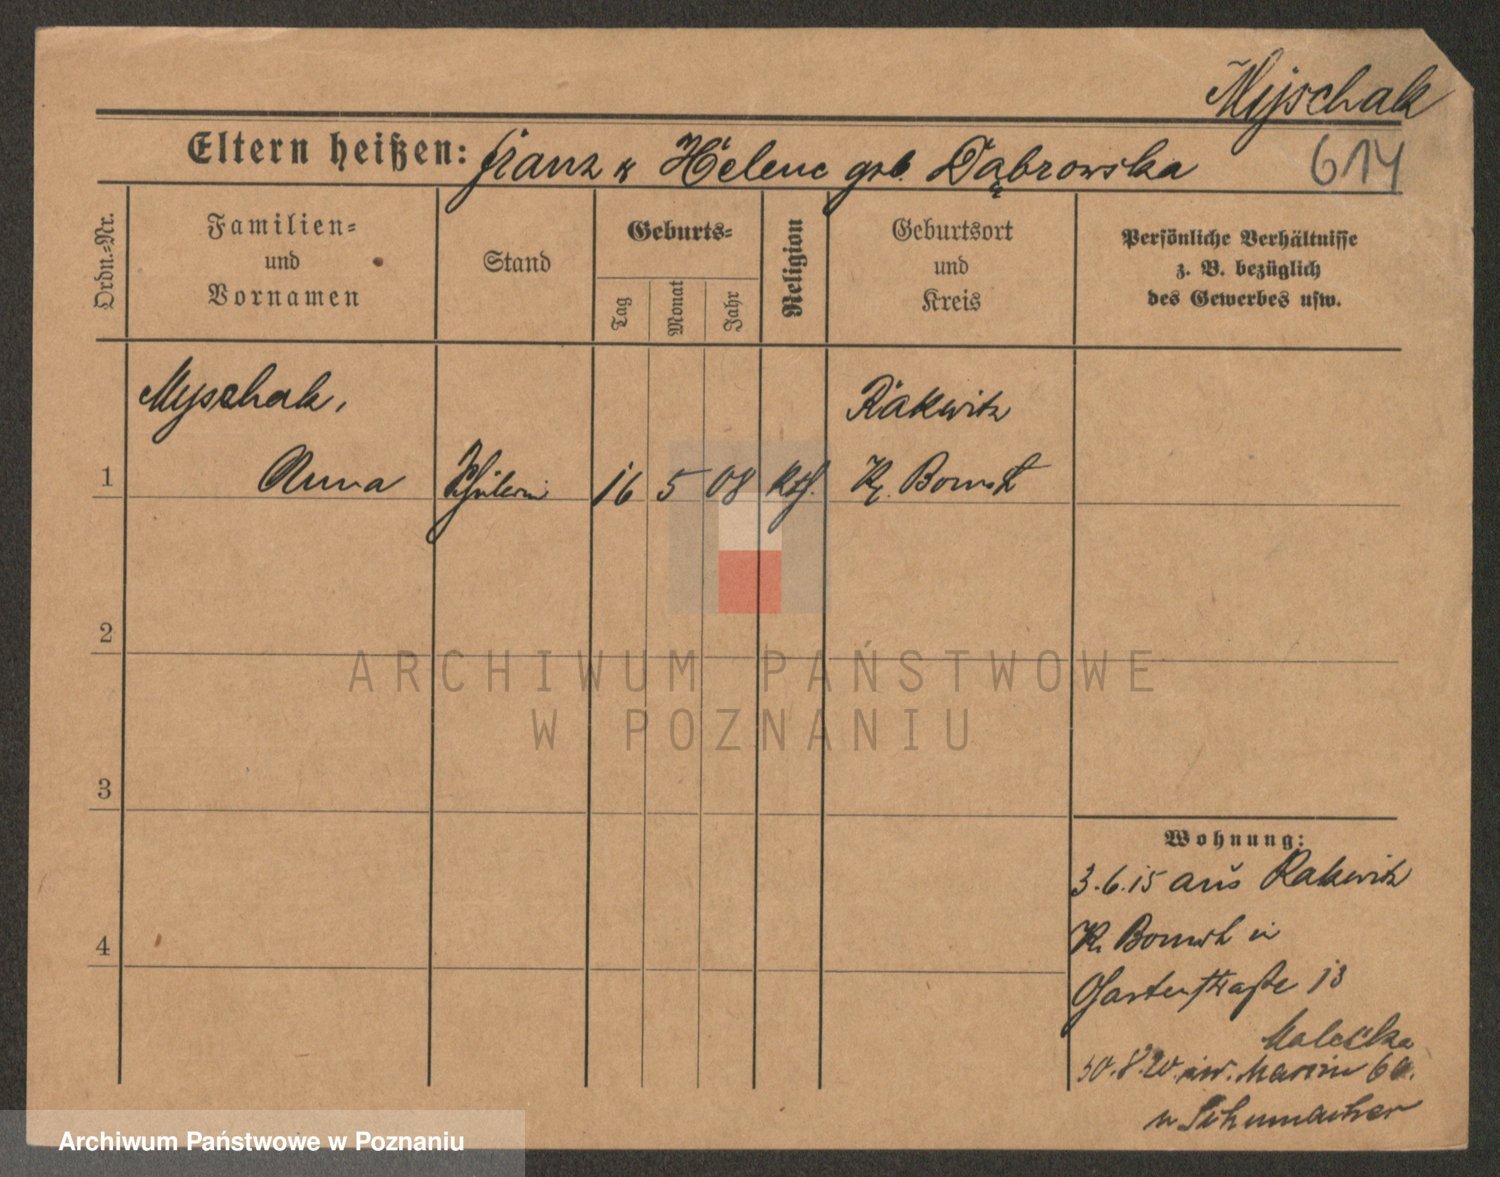 Myschak
614
Eltern heißen: Franz u Helene geb. Dąbrowska
Ordn.-Nr.
Familien-
und
Vornamen
Stand
Geburts-
Tag
Monat
Jahr
Religion
Geburtsort
und
Kreis
Persönliche Verhältnisse
z. B. bezüglich
des Gewerbes usw.
Myschak,
Rakwitz
1 Anna Schülerin 16 5 08 kath. Kr. Bomst
2
3
4
Wohnung:
3.6.15 aus Rakwitz
Kr. Bomst in
Gartenstraße 13
Maletzka
30.8.20 Marcin 60.
Schumacher
ARCHIWUM PAŃSTWOWE
W POZNANIU
Archiwum Państwowe w Poznaniu